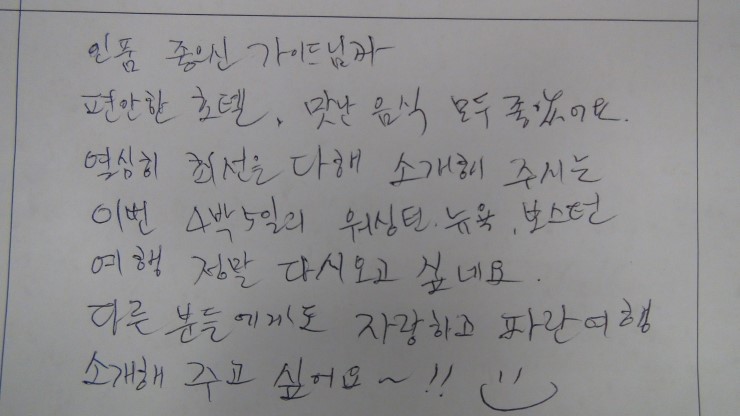 인품 좋으신 가이드님과
편안한 호텔, 맛난 음식 모두 좋았어요.
열심히 최선을 다해 소개해 주시는
이번 4박5일의 워싱턴.뉴욕.보스턴
여행 정말 다시오고 싶네요.
다른 분들에게도 자랑하고 파란여행
소개해 주고 싶어요~!!